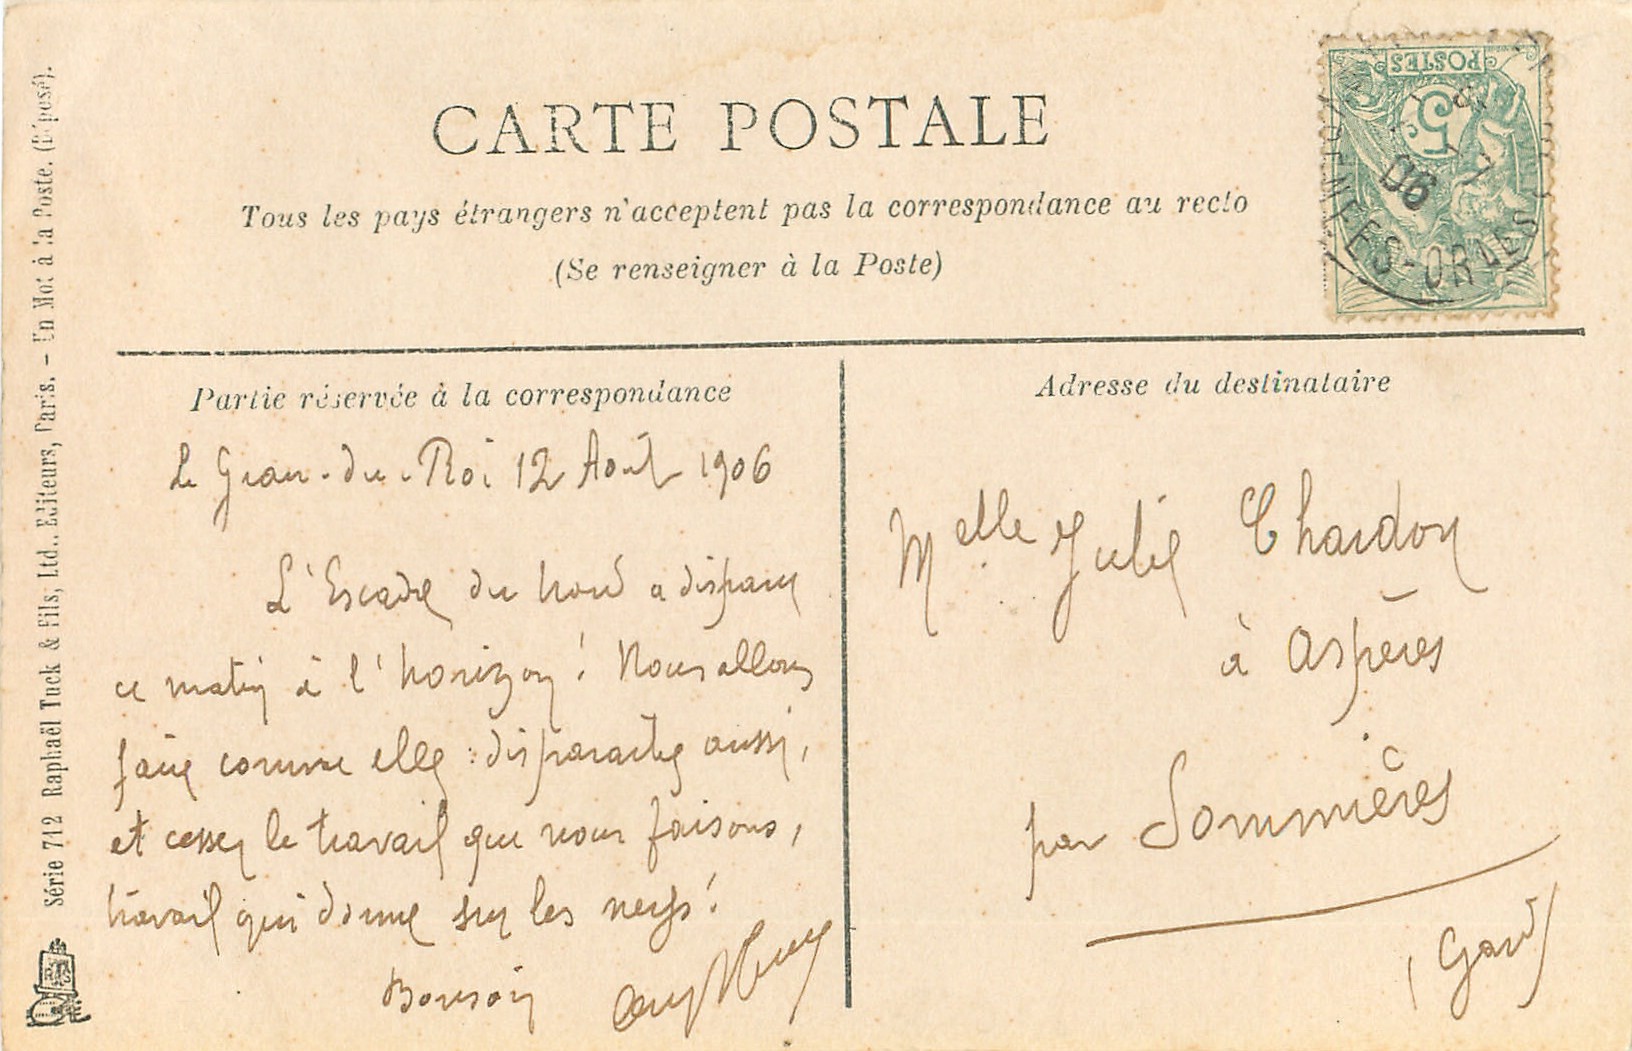 CARTE POSTALE
Tous les pays étrangers n'acceptent pas la correspondance au recto
(Se renseigner à la Poste)
POSTES
5c
06
ES-ORMES
Série 712 Raphaël Tuck & Fils, Ltd., Editeurs, Paris. - Un Mot à la Poste. (Déposé).
Partie réservée à la correspondance
Le Grau-du-Roi 12 Août 1906
L'Escadre du nord a disparu
ce matin à l'horizon! Nous allons
faire comme elle: disparaitre aussi,
et cesser le travail que nous faisons,
travail qui donne sur les nerfs!
Bonsoir
Adresse du destinataire
Melle Julie Chardon
à Aspères
par Sommières
(Gard)